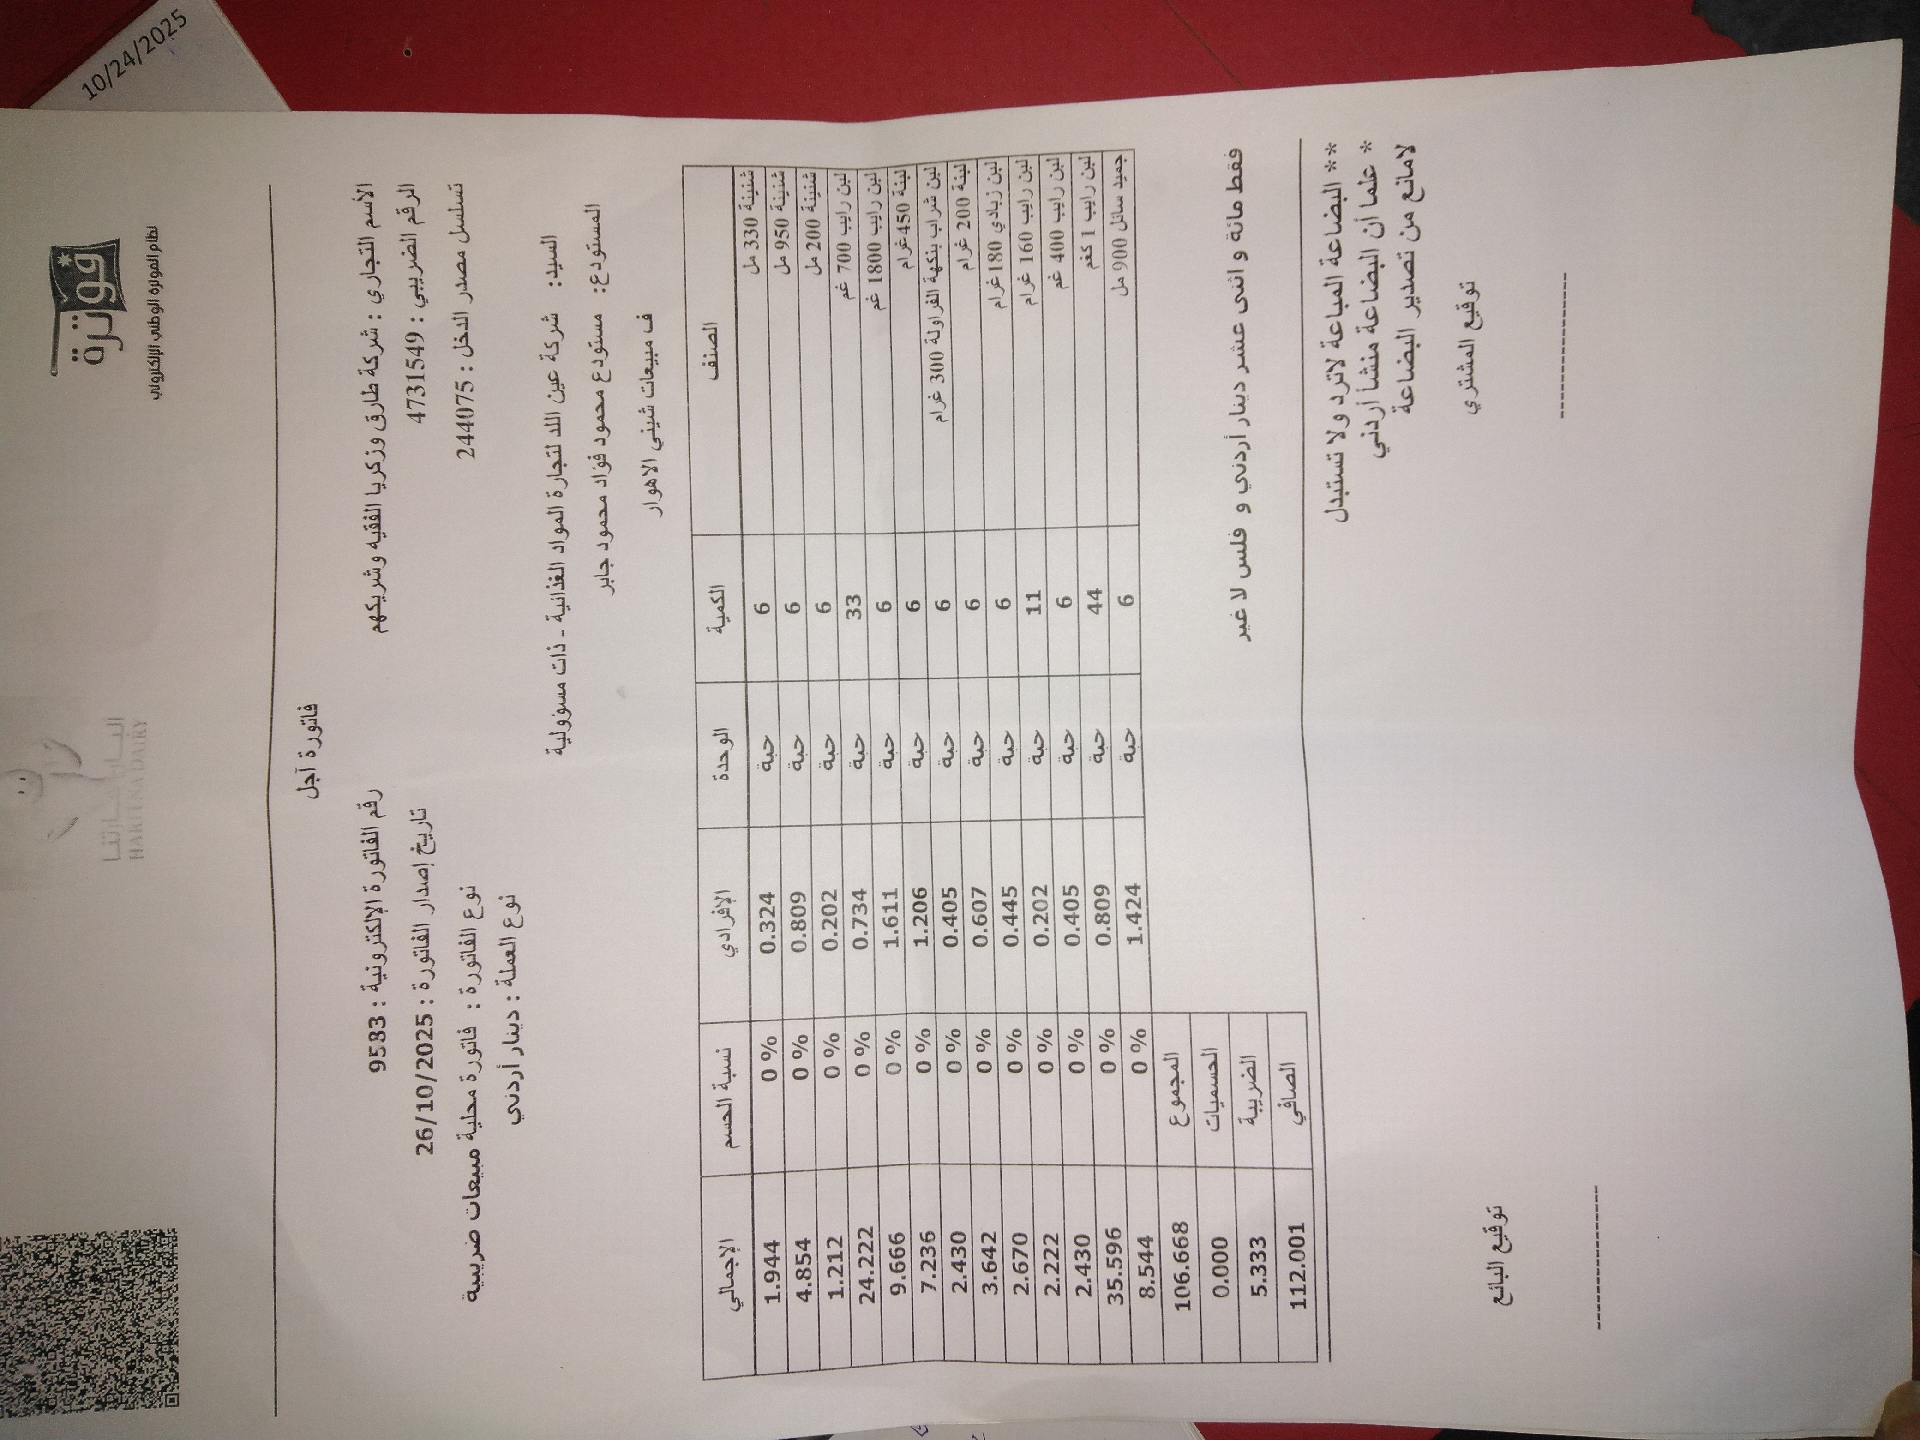 10/24/2025
فوترة
نظام الفوترة الوطني الإلكتروني
ألبـــان حـــارتنـــا
HARITNA DAIRY
فاتورة آجل
الأسم التجاري : شركة طارق وزكريا الفقيه وشريكهم
رقم الفاتورة الإلكترونية : 9583
الرقم الضريبي : 4731549
تاريخ إصدار الفاتورة : 26/10/2025
تسلسل مصدر الدخل : 244075
نوع الفاتورة : فاتورة محلية مبيعات ضريبية
نوع العملة : دينار أردني
السيد: شركة عين اللد لتجارة المواد الغذائية - ذات مسؤولية
المستودع: مستودع محمود فؤاد محمود جابر
ف مبيعات شيني الاهوار
الصنف الكمية الوحدة الإفرادي نسبة الحسم الإجمالي
شنينة 330 مل 6 حبة 0.324 0 % 1.944
شنينة 950 مل 6 حبة 0.809 0 % 4.854
شنينة 200 مل 6 حبة 0.202 0 % 1.212
لبن رايب 700 غم 33 حبة 0.734 0 % 24.222
لبن رايب 1800 غم 6 حبة 1.611 0 % 9.666
لبنة 450 غرام 6 حبة 1.206 0 % 7.236
لبن شراب بنكهة الفراولة 300 غرام 6 حبة 0.405 0 % 2.430
لبنة 200 غرام 6 حبة 0.607 0 % 3.642
لبن زبادي 180 غرام 6 حبة 0.445 0 % 2.670
لبن رايب 160 غرام 11 حبة 0.202 0 % 2.222
لبن رايب 400 غم 6 حبة 0.405 0 % 2.430
لبن رايب 1 كغم 44 حبة 0.809 0 % 35.596
جميد سائل 900 مل 6 حبة 1.424 0 % 8.544
المجموع 106.668
الحسميات 0.000
الضريبة 5.333
الصافي 112.001
فقط مائة و اثنى عشر دينار أردني و فلس لا غير
** البضاعة المباعة لاترد ولا تستبدل
* علما أن البضاعة منشأ أردني
لامانع من تصدير البضاعة
توقيع المشتري
توقيع البائع